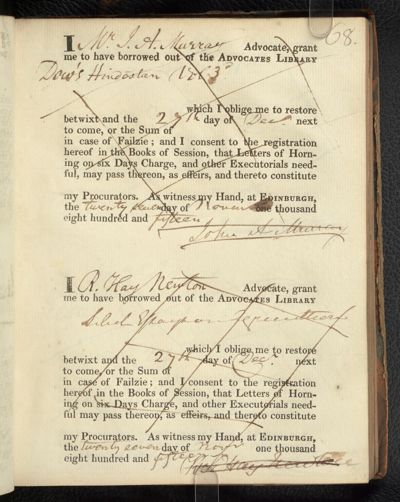 68.
I Mr. J. A. Murray Advocate, grant
me to have borrowed out of the ADVOCATES LIBRARY
Dow's Hindostan Vol 3
which I oblige me to restore
betwixt and the 27th day of Decr. next
to come, or the Sum of
in case of Failzie; and I consent to the registration
hereof in the Books of Session, that Letters of Horn-
ing on six Days Charge, and other Executorials need-
ful, may pass thereon, as effeirs, and thereto constitute
my Procurators. As witness my Hand, at EDINBURGH,
the twenty seven day of Novem one thousand
eight hundred and fifteen
John A. Murray
I R. Hay Newton Advocate, grant
me to have borrowed out of the ADVOCATES LIBRARY
which I oblige me to restore
betwixt and the 27th day of Decr. next
to come, or the Sum of
in case of Failzie; and I consent to the registration
hereof in the Books of Session, that Letters of Horn-
ing on six Days Charge, and other Executorials need-
ful may pass thereon, as effeirs, and thereto constitute
my Procurators. As witness my Hand, at EDINBURGH,
the twenty seven day of Novr one thousand
eight hundred and fifteen
Hay Newton